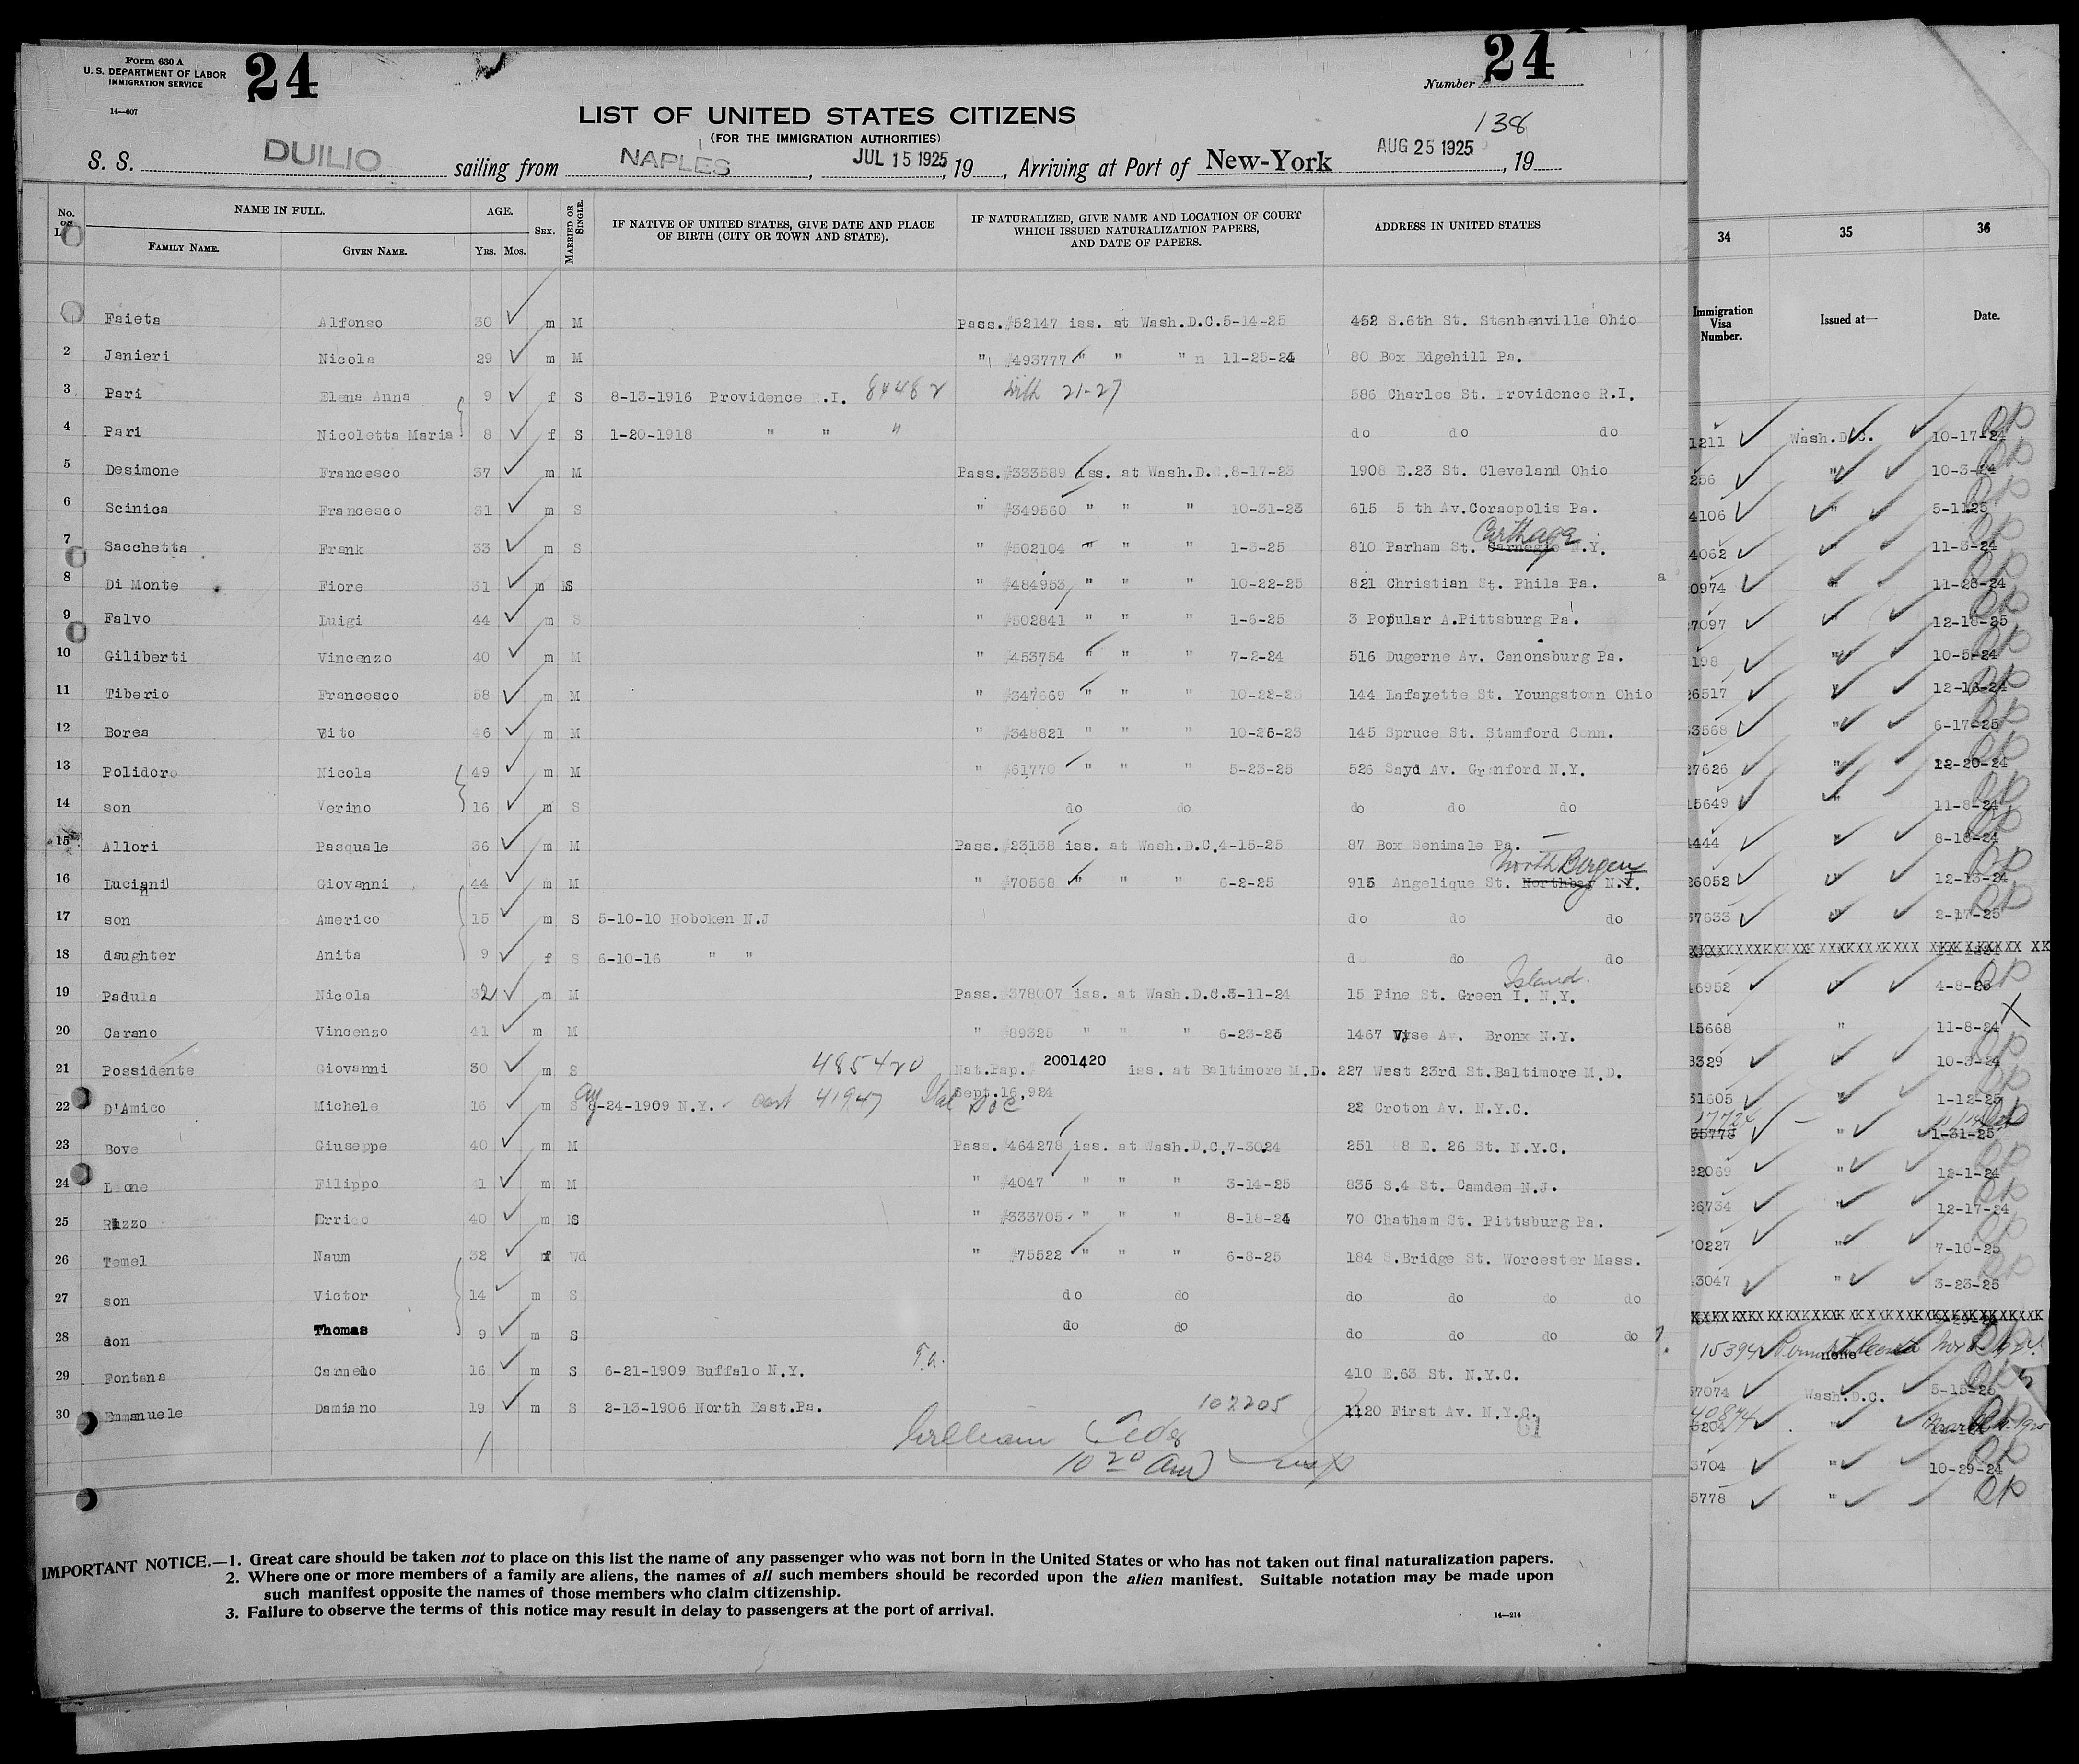 Form 630 A
U. S. DEPARTMENT OF LABOR
IMMIGRATION SERVICE
14—607
24
Number 24
LIST OF UNITED STATES CITIZENS
(FOR THE IMMIGRATION AUTHORITIES)
138
S. S. DUILIO sailing from NAPLES, JUL 15 1925, 19, Arriving at Port of New-York AUG 25 1925, 19
No. on NAME IN FULL. AGE. SEX. MARRIED OR SINGLE. IF NATIVE OF UNITED STATES, GIVE DATE AND PLACE OF BIRTH (CITY OR TOWN AND STATE). IF NATURALIZED, GIVE NAME AND LOCATION OF COURT WHICH ISSUED NATURALIZATION PAPERS, AND DATE OF PAPERS. ADDRESS IN UNITED STATES
FAMILY NAME. GIVEN NAME. YRS. MOS.
Faieta Alfonso 30 m M Pass. #52147 iss. at Wash.D.C.5-14-25 452 S.6th St. Stenbenville Ohio
2 Janieri Nicola 29 m M " #493777 " " " n 11-25-24 80 Box Edgehill Pa.
3 Pari Elena Anna 9 f S 8-13-1916 Providence R.I. 84482 with 21-27 586 Charles St. Providence R.I.
4 Pari Nicoletta Maria 8 f S 1-20-1918 " " " do do do
5 Desimone Francesco 37 m M Pass. #333589 iss. at Wash.D. .8-17-23 1908 E.23 St. Cleveland Ohio
6 Scinica Francesco 31 m S " #349560 " " " 10-31-23 615 5 th Av.Coraopolis Pa.
7 Sacchetta Frank 33 m S " #502104 " " " 1-3-25 810 Parham St. Carnegie Carthage N.Y.
8 Di Monte Fiore 31 m S " #484953 " " " 10-22-25 821 Christian St. Phila Pa.
9 Falvo Luigi 44 m S " #502841 " " " 1-6-25 3 Popular A.Pittsburg Pa.
10 Giliberti Vincenzo 40 m M " #453754 " " " 7-2-24 516 Dugerne Av. Canonsburg Pa.
11 Tiberio Francesco 58 m M " #347669 " " " 10-22-23 144 Lafayette St. Youngstown Ohio
12 Borea Vito 46 m M " #348821 " " " 10-26-23 145 Spruce St. Stamford Conn.
13 Polidoro Nicola 49 m M " #61770 " " " 5-23-25 526 Sayd Av. Granford N.Y.
14 son Verino 16 m S do do do do do
15 Allori Pasquale 36 m M Pass. #23138 iss. at Wash.D.C.4-15-25 87 Box Senimale Pa.
16 Luciani Giovanni 44 m M " #70568 " " " 6-2-25 915 Angelique St. Northbay North Bergen N.J.
17 son Americo 15 m S 5-10-10 Hoboken N.J do do do
18 daughter Anita 9 f S 6-10-16 " " d do do
19 Padula Nicola 32 m M Pass. #378007 iss. at Wash.D.C.3-11-24 15 Pine St. Green I. Island N.Y.
20 Carano Vincenzo 41 m M " #89325 " " " 6-23-25 1467 Vyse Av. Bronx N.Y.
21 Possidente Giovanni 30 m S 485420 Nat.Pap. 2001420 iss. at Baltimore M.D. 227 West 23rd St.Baltimore M.D.
Sept.16,924
22 D'Amico Michele 16 m S 8-24-1909 N.Y. cert 41947 22 Croton Av. N.Y.C.
23 Bove Giuseppe 40 m M Pass. #464278 iss. at Wash.D.C.7-3024 251 E. 26 St. N.Y.C.
24 Leone Filippo 41 m M " #4047 " " " 3-14-25 835 S.4 St. Camdem N.J.
25 Rizzo Errico 40 m S " #333705 " " " 8-18-24 70 Chatham St. Pittsburg Pa.
26 Temel Naum 32 f Wd " #75522 " " " 6-8-25 184 S.Bridge St. Worcester Mass.
27 son Victor 14 m S do do do do do do
28 son Thomas 9 m S do do do do do do
29 Fontana Carmelo 16 m S 6-21-1909 Buffalo N.Y. 410 E.63 St. N.Y.C.
30 Emmanuele Damiano 19 m S 2-13-1906 North East.Pa. 107205 1120 First Av. N.Y.C.
61
William
10 20 am
IMPORTANT NOTICE.—1. Great care should be taken not to place on this list the name of any passenger who was not born in the United States or who has not taken out final naturalization papers.
2. Where one or more members of a family are aliens, the names of all such members should be recorded upon the alien manifest. Suitable notation may be made upon
such manifest opposite the names of those members who claim citizenship.
3. Failure to observe the terms of this notice may result in delay to passengers at the port of arrival.
14—214
34 35 36
Immigration Visa Number. Issued at— Date.
1211 Wash.D.C. 10-17-24
256 " 10-3-24
4106 " 5-1125
4062 " 11-3-24
0974 " 11-28-24
7097 " 12-18-25
198 " 10-5-24
26517 " 12-16-24
33568 " 6-17-25
27626 " 12-20-24
15649 " 11-8-24
4444 " 8-18-24
26052 " 12-13-24
67633 " 2-17-25
16952 " 4-8-25
15668 " 11-8-24
8329 " 10-3-24
31605 " 1-12-25
35778 " 1-31-25
22069 " 12-1-24
26734 " 12-17-24
70227 " 7-10-25
3047 " 3-23-25
15394 none
57074 Wash.D.C. 5-15-25
40874 "
3704 " 10-29-24
5778 "